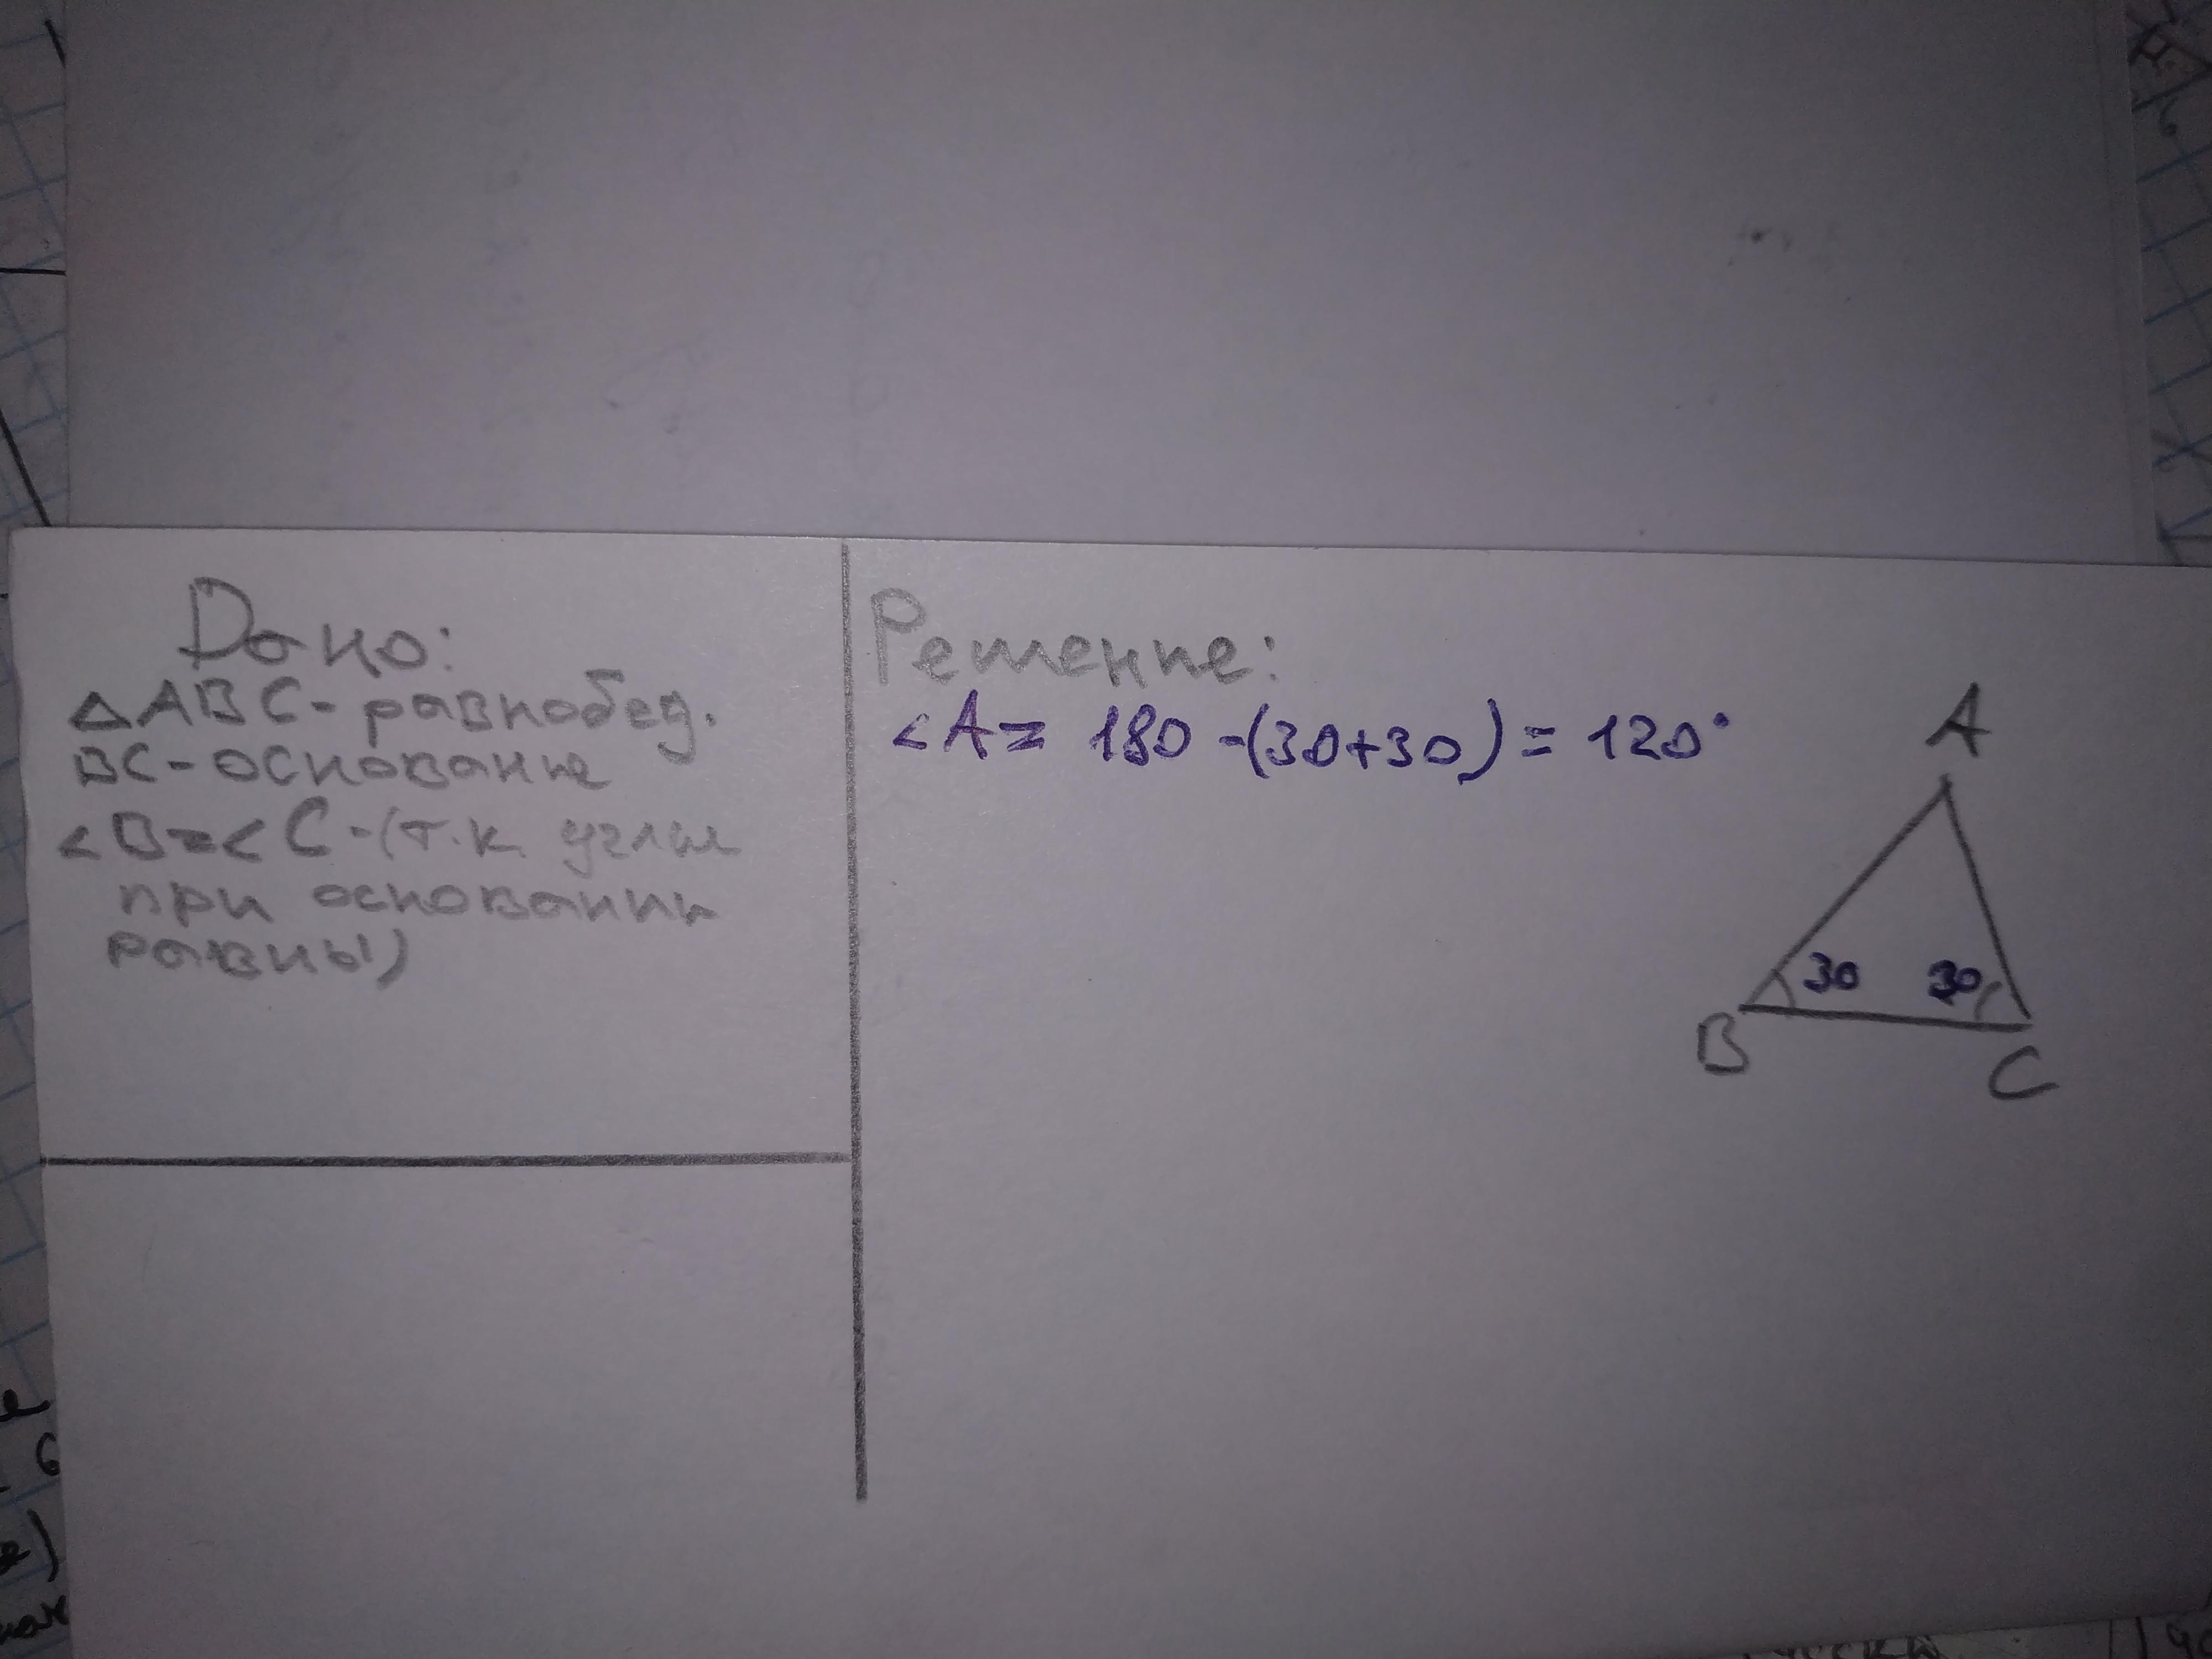 Дано:
△ABC - равнобед.
BC - основание
<B = <C - (т.к. углы
при основании
равны)
Решение:
<A = 180 - (30+30) = 120°
A
30 30
B C